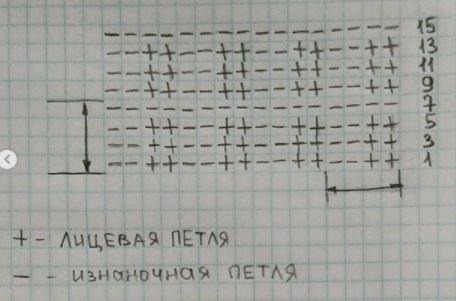 - - - - - - - - - - - - - - - - 15
- - + + - - + + - - + + - - + + 13
- - + + - - + + - - + + - - + + 11
- - + + - - + + - - + + - - + + 9
- - - - - - - - - - - - - - - - 7
- - + + - - + + - - + + - - + + 5
- - + + - - + + - - + + - - + + 3
- - + + - - + + - - + + - - + + 1
+ - ЛИЦЕВАЯ ПЕТЛЯ
— - ИЗНАНОЧНАЯ ПЕТЛЯ